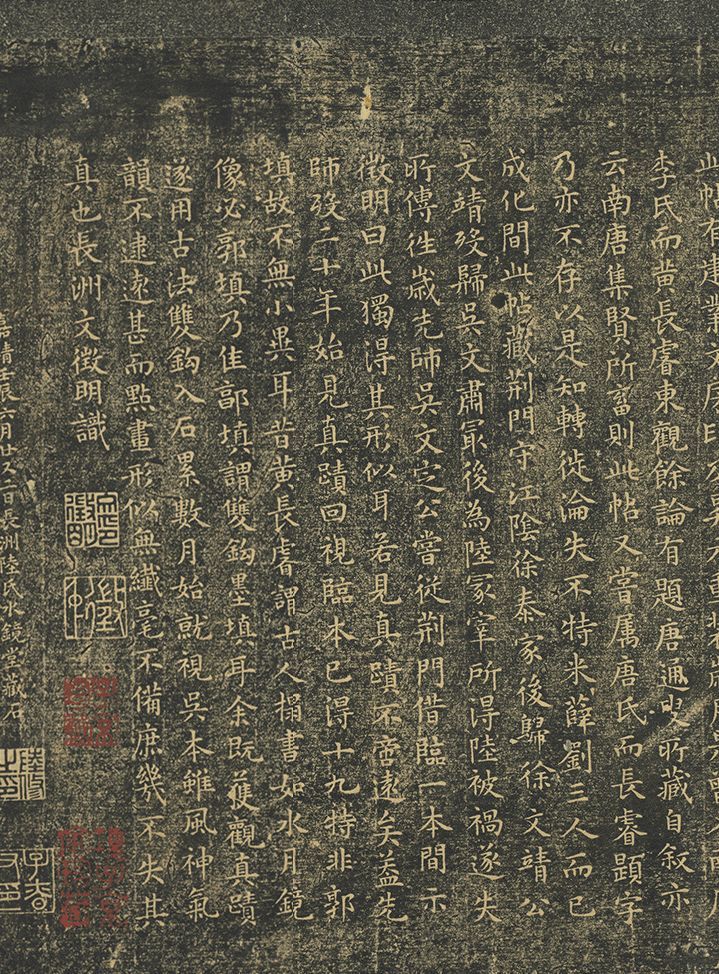 此帖有建業文房印
李氏而黄長睿東觀餘論有題唐通叟所藏自叙亦
云南唐集賢所畜則此帖又嘗属唐氏而長睿題字
乃亦不存以是知轉徙淪失不特米薛劉三人而已
成化間此帖藏荆門守江陰徐泰家後歸徐文靖公
文靖歿歸吴文肅㝡後為陸冢宰所得陸被禍遂失
所傳徃歲先師吴文定公嘗從荆門借臨一本間示
徵明曰此獨得其形似耳若見真蹟不啻遠矣蓋先
師歿二十年始見真蹟回視臨本已得十九特非郭
填故不無小異耳昔黄長睿謂古人搨書如水月鏡
像必郭填乃佳郭填謂雙鈎墨填耳余既獲觀真蹟
遂用古法雙鈎入石累數月始就視吴本雖風神氣
韻不逮遠甚而點畫形似無纖毫不備庶幾不失其
真也長洲文徵明識
嘉靖壬辰六月廿又二日長洲陸氏水鏡堂藏石